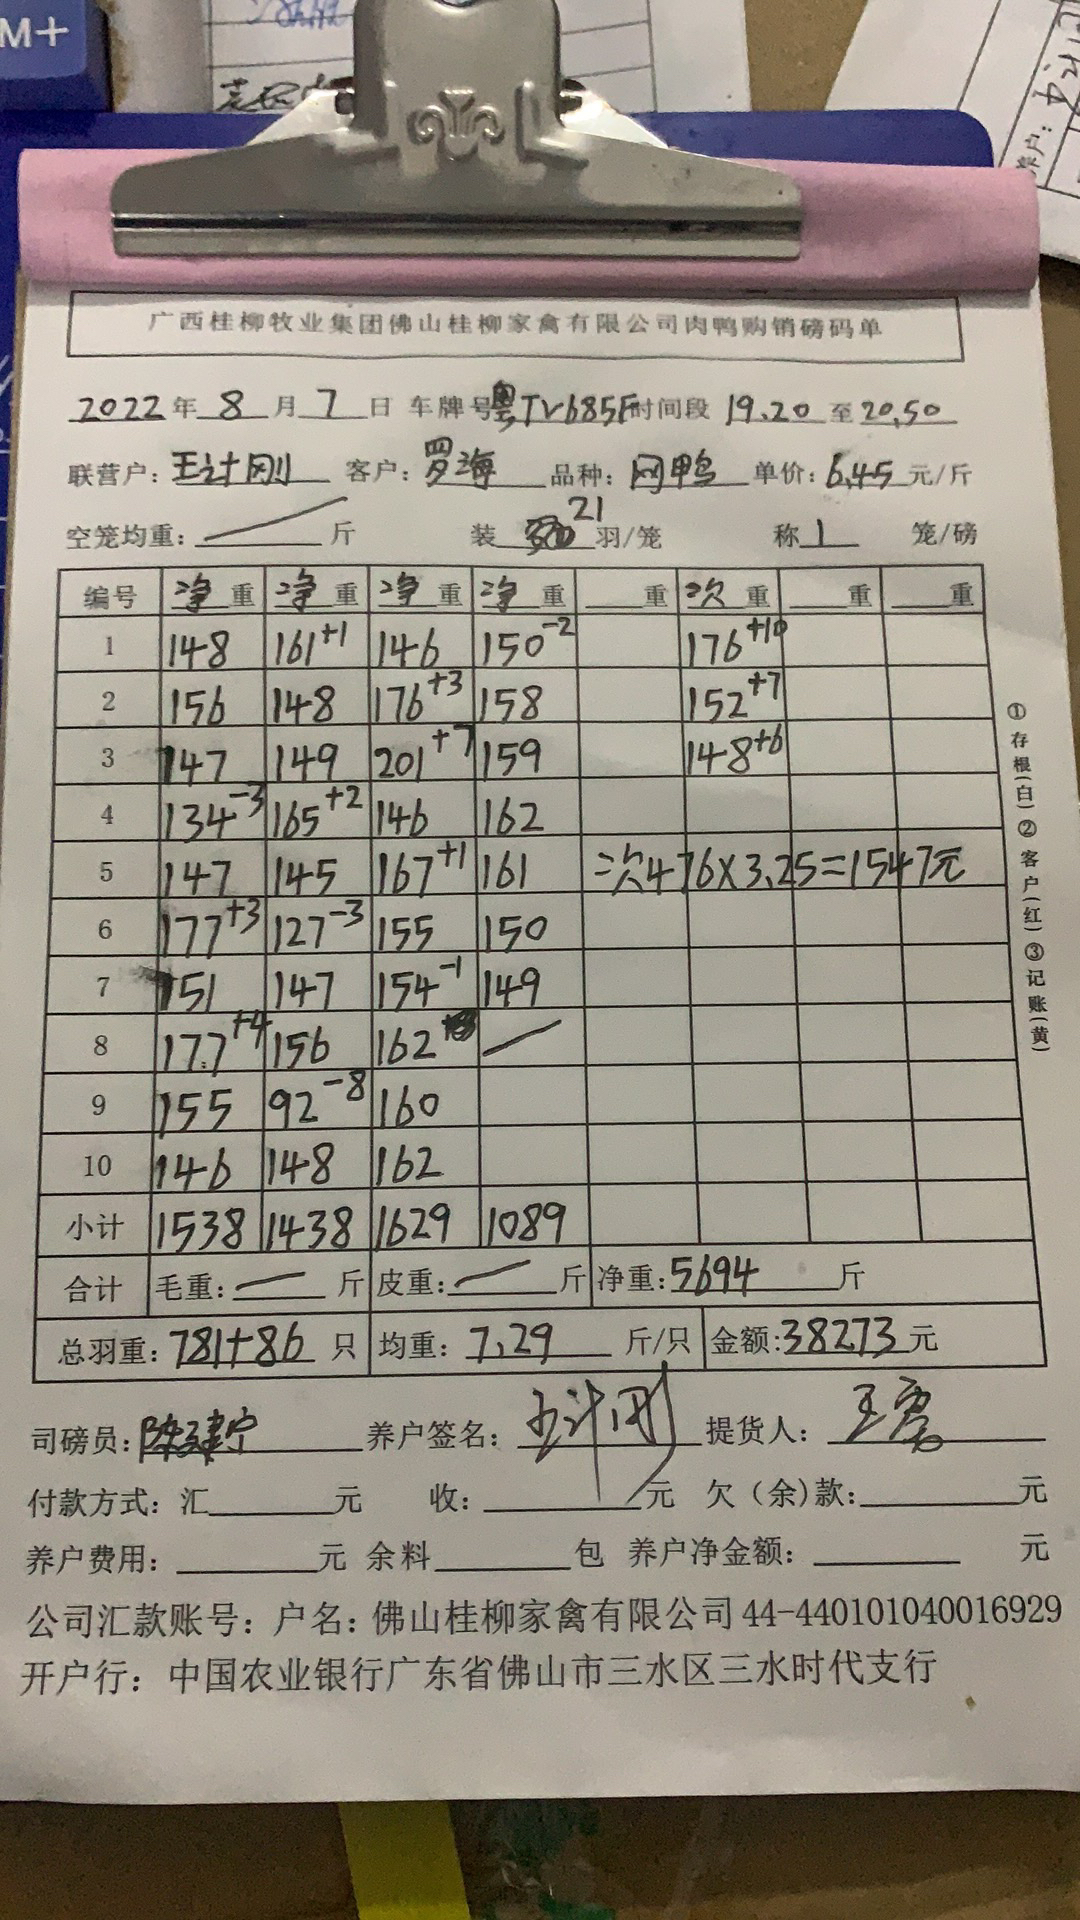 M+
广西桂柳牧业集团佛山桂柳家禽有限公司肉鸭购销磅码单
2022年 8 月 7 日 车牌号粤TV685F时间段 19.20 至 20.50
联营户: 王计刚 客户: 罗海 品种: 网鸭 单价: 6.45 元/斤
空笼均重: 斤 装 21 羽/笼 称 1 笼/磅
编号 净重 净重 净重 净重 重 次重 重 重
1 148 161+1 146 150-2 176+10
2 156 148 176+3 158 152+7
3 147 149 201+7 159 148+6
4 134-3 165+2 146 162
5 147 145 167+1 161 二次476×3.25=1547元
6 177+3 127-3 155 150
7 151 147 154-1 149
8 177+4 156 162
9 155 92-8 160
10 146 148 162
小计 1538 1438 1629 1089
合计 毛重: 斤 皮重: 斤 净重: 5694 斤
总羽重: 781+86 只 均重: 7.29 斤/只 金额: 38273 元
司磅员: 陈建宁 养户签名: 王计刚 提货人: 王
付款方式: 汇 元 收: 元 欠(余)款: 元
养户费用: 元 余料 包 养户净金额: 元
公司汇款账号: 户名: 佛山桂柳家禽有限公司 44-440101040016929
开户行: 中国农业银行广东省佛山市三水区三水时代支行
①存根(白)②客户(红)③记账(黄)